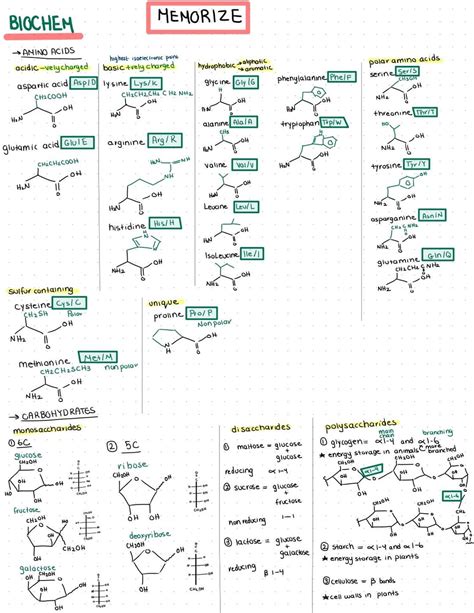 BIOCHEM
MEMORIZE
→ AMINO ACIDS
acidic -vely charged
aspartic acid Asp/D
CH2COOH
OH
H2N
O
glutamic acid Glu/E
CH2CH2COOH
OH
H2N
O
highest isoelectronic point
basic +vely charged
lysine Lys/K
OH
H2N
O
arginine Arg/R
NH
OH
H2N
O
histidine His/H
OH
NH2
O
hydrophobic
aliphatic
aromatic
glycine Gly/G
H
OH
H2N
O
alanine Ala/A
CH3
OH
H2N
O
valine Val/V
OH
H2N
O
Leucine Leu/L
OH
H2N
O
Isoleucine Ile/I
OH
NH2
O
phenylalanine Phe/F
OH
H2N
O
tryptophan Trp/W
OH
H2N
O
polar amino acids
serine Ser/S
OH
H2N
O
threonine Thr/T
HO
OH
H2N
O
tyrosine Tyr/Y
OH
NH2
O
asparganine Asn/N
OH
NH2
O
glutamine Gln/Q
OH
NH2
O
sulfur containing
cysteine Cys/C
CH2SH
Polar
OH
NH2
O
methianine Met/M
CH2CH2SCH3
nonpolar
OH
NH2
O
unique
proline Pro/P
Nonpolar
OH
N
H
O
→ CARBOHYDRATES
monosaccharides
① 6C
glucose
CH2OH
OH
HO
OH
fructose
CH2OH
OH
CH2OH
OH
galactose
CH2OH
OH
OH
② 5C
ribose
OH
OH OH
deoxyribose
OH
OH
disaccharides
① maltose = glucose
glucose
reducing α1-4
② sucrose = glucose
fructose
non reducing 1-1
③ lactose = glucose
+
galactose
reducing
β 1-4
polysaccharides
main chain
branching
① glycogen = α1-4 and α1-6
* energy storage in animals
more branched
CH2OH
α1-4
α1-6
② starch = α1-4 and α1-6
* energy storage in plants
③ cellulose = β bonds
* cell walls in plants